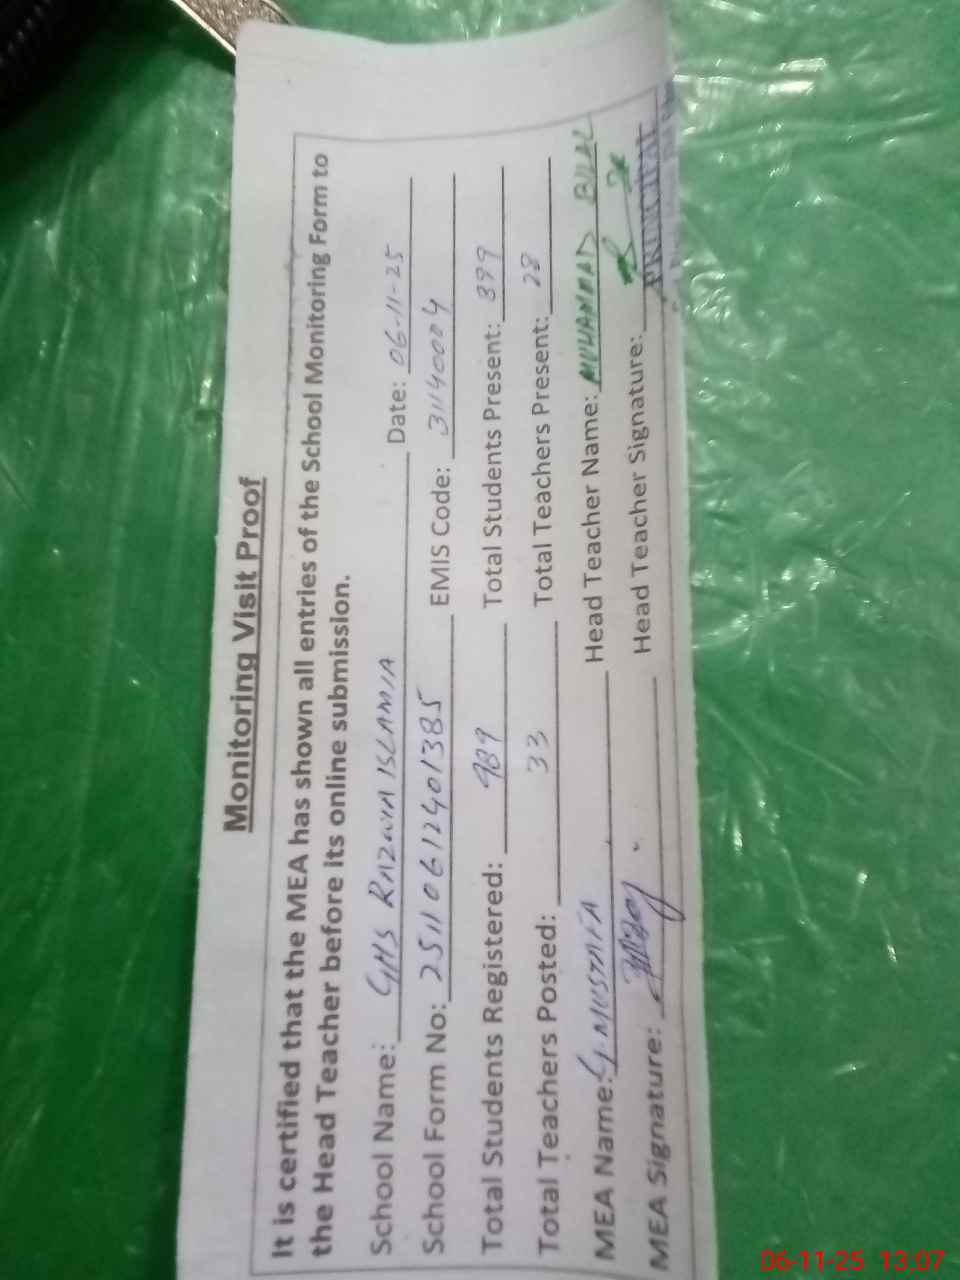 Monitoring Visit Proof
It is certified that the MEA has shown all entries of the School Monitoring Form to
the Head Teacher before its online submission.
School Name: GHS RAZWIA ISLAMIA Date: 06-11-25
School Form No: 251106112401385 EMIS Code: 31140004
Total Students Registered: 989 Total Students Present: 899
Total Teachers Posted: 33 Total Teachers Present: 28
MEA Name: G. MUSTAFA Head Teacher Name: MUHAMMAD BILAL
MEA Signature: Head Teacher Signature:
PRINCIPAL
06-11-25 13:07